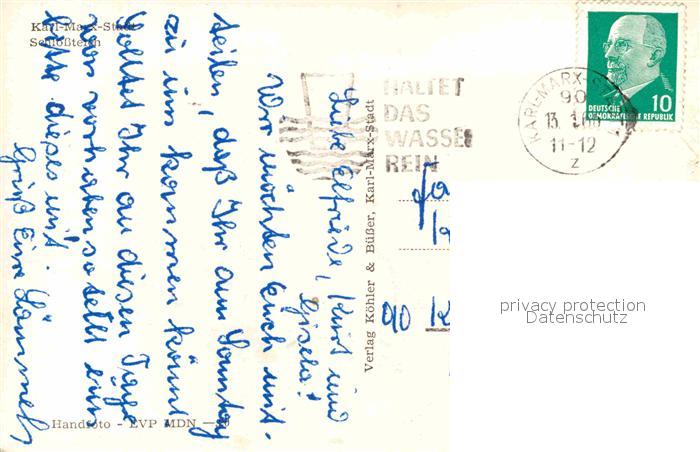 Karl-Marx-Stadt
Schloßteich
Liebe Elfriede, Kurt und
Gisela!
Wir möchten Euch mit-
teilen, daß Ihr am Sonntag
zu uns kommen könnt
Solltet Ihr an diesen Tage
was vorhaben so teilt uns
bitte dieses mit.
Gruß Eure
Handfoto - EVP MDN
Verlag Köhler & Büßer, Karl-Marx-Stadt
HALTET
DAS
WASSER
REIN
KARL-MARX-
90
13.
11-12
z
DEUTSCHE
DEMOKRATISCHE REPUBLIK
10
90
privacy protection
Datenschutz